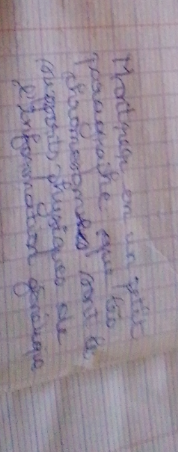 Montrer en un petit
paragraphe que les
chromosomes sont le
supports physiques de
l'information génétique